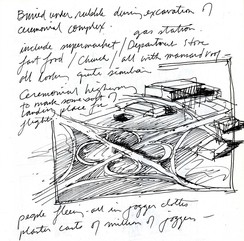 Buried under rubble during excavation of
ceremonial complex. gas station.
include supermarket / Department Store
fast food / Church / all with mansard roof -
all looking quite similar
Ceremonial highway
to make some sort of
landing place for
flight
people fleeing - all in jogger clothes
plaster casts of million of joggers -